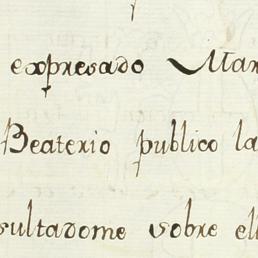 expresado Mar
Beaterio publico la
sultadome sobre ell